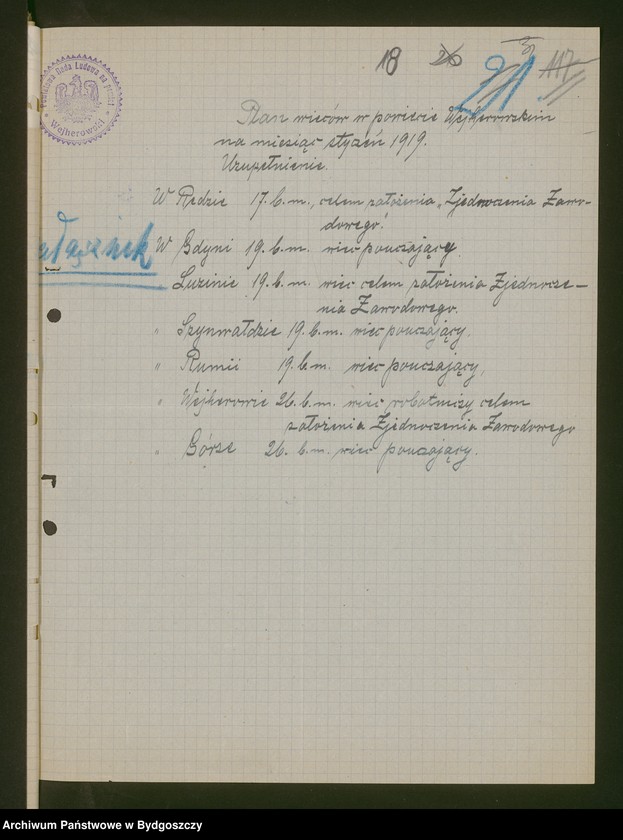 18 26 21 117
Powiatowa Rada Ludowa na powiat Wejherowski
Plan wieców w powiecie Wejherowskim
na miesiąc styczeń 1919.
Uzupełnienie.
W Redzie 17. b. m., celem założenia „Zjednoczenia Zawo-
dowego".
W Gdyni 19. b. m. wiec pouczający.
Luzinie 19. b. m. wiec celem założenia Zjednocze-
nia Zawodowego.
" Szynwałdzie 19. b. m. wiec pouczający.
" Rumii 19. b. m. wiec pouczający,
" Wejherowie 26. b. m. wiec robotniczy celem
założenia Zjednoczenia Zawodowego
" Górze 26. b. m. wiec pouczający.
Archiwum Państwowe w Bydgoszczy